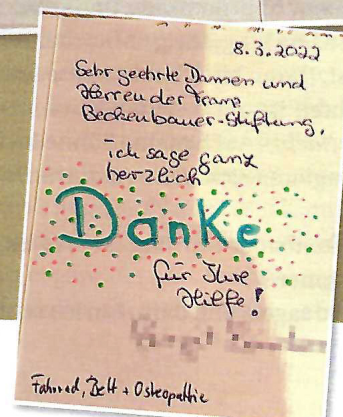 8.3.2022
Sehr geehrte Damen und
Herren der Franz
Beckenbauer-Stiftung,
ich sage ganz
herzlich
Danke
für Ihre
Hilfe!
Fahrrad, Bett + Osteopathie